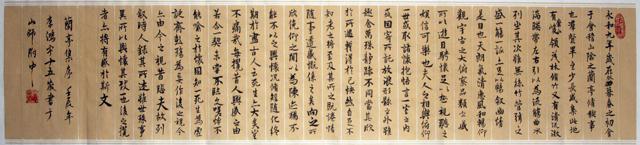 永和九年歲在癸丑暮春之初會
于會稽山陰之蘭亭脩禊事
也羣賢畢至少長咸集此地
有崇山峻領茂林脩竹又有清流激
湍暎帶左右引以為流觴曲水
列坐其次雖無絲竹管弦之
盛一觴一詠亦足以暢敘幽情
是日也天朗氣清惠風和暢仰
觀宇宙之大俯察品類之盛
所以遊目騁懷足以極視聽之
娛信可樂也夫人之相與俯仰
一世或取諸懷抱悟言一室之內
或因寄所託放浪形骸之外雖
趣舍萬殊靜躁不同當其欣
於所遇暫得於己快然自足不
知老之將至及其所之既惓情
隨事遷感慨係之矣向之所
欣俛仰之間以為陳迹猶不
能不以之興懷況脩短隨化終
期於盡古人云死生亦大矣豈
不痛哉每攬昔人興感之由
若合一契未嘗不臨文嗟悼不
能喻之於懷固知一死生為虛
誕齊彭殤為妄作後之視今
亦由今之視昔悲夫故列
敘時人錄其所述雖世殊事
異所以興懷其致一也後之攬
者亦將有感於斯文
蘭亭集序 壬辰年
李鴻宇十五歲書于
山師附中